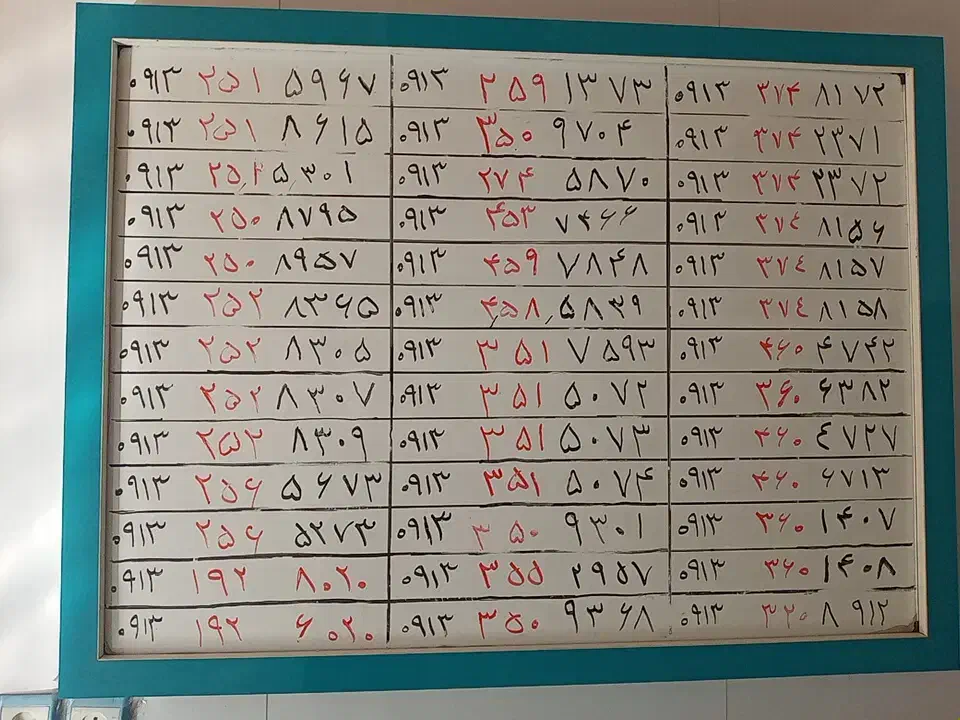 ۰۹۱۳ ۲۵۱ ۵۹۶۷
۰۹۱۳ ۲۵۱ ۸۶۱۵
۰۹۱۳ ۲۵۱ ۵۳۰۱
۰۹۱۳ ۲۵۰ ۸۷۹۵
۰۹۱۳ ۲۵۰ ۸۹۵۷
۰۹۱۳ ۲۵۲ ۸۳۶۵
۰۹۱۳ ۲۵۲ ۸۳۰۵
۰۹۱۳ ۲۵۲ ۸۳۰۷
۰۹۱۳ ۲۵۲ ۸۳۰۹
۰۹۱۳ ۲۵۶ ۵۶۷۳
۰۹۱۳ ۲۵۶ ۵۲۷۳
۰۹۱۳ ۱۹۲ ۸۰۲۰
۰۹۱۳ ۱۹۲ ۶۰۲۰
۰۹۱۳ ۲۵۹ ۱۳۷۳
۰۹۱۳ ۳۵۰ ۹۷۰۴
۰۹۱۳ ۲۷۴ ۵۸۷۰
۰۹۱۳ ۴۵۳ ۷۴۶۶
۰۹۱۳ ۴۵۹ ۷۸۴۸
۰۹۱۳ ۴۵۸ ۵۸۳۹
۰۹۱۳ ۳۵۱ ۷۵۹۳
۰۹۱۳ ۳۵۱ ۵۰۷۲
۰۹۱۳ ۳۵۱ ۵۰۷۳
۰۹۱۳ ۳۵۱ ۵۰۷۴
۰۹۱۳ ۳۵۰ ۹۳۰۱
۰۹۱۳ ۳۵۵ ۲۹۵۷
۰۹۱۳ ۳۵۰ ۹۳۶۸
۰۹۱۳ ۳۷۴ ۸۱۷۲
۰۹۱۳ ۳۷۴ ۲۳۷۱
۰۹۱۳ ۳۷۴ ۲۳۷۲
۰۹۱۳ ۳۷٤ ۸۱۵۶
۰۹۱۳ ۳۷٤ ۸۱۵۷
۰۹۱۳ ۳۷٤ ۸۱۵۸
۰۹۱۳ ۴۶۰ ۴۷۴۲
۰۹۱۳ ۳۶۰ ۶۳۸۲
۰۹۱۳ ۴۶۰ ٤۷۲۷
۰۹۱۳ ۴۶۰ ۶۷۱۳
۰۹۱۳ ۳۶۰ ۱۴۰۷
۰۹۱۳ ۳۶۰ ۱۴۰۸
۰۹۱۳ ۳۲۰ ۸۹۱۲